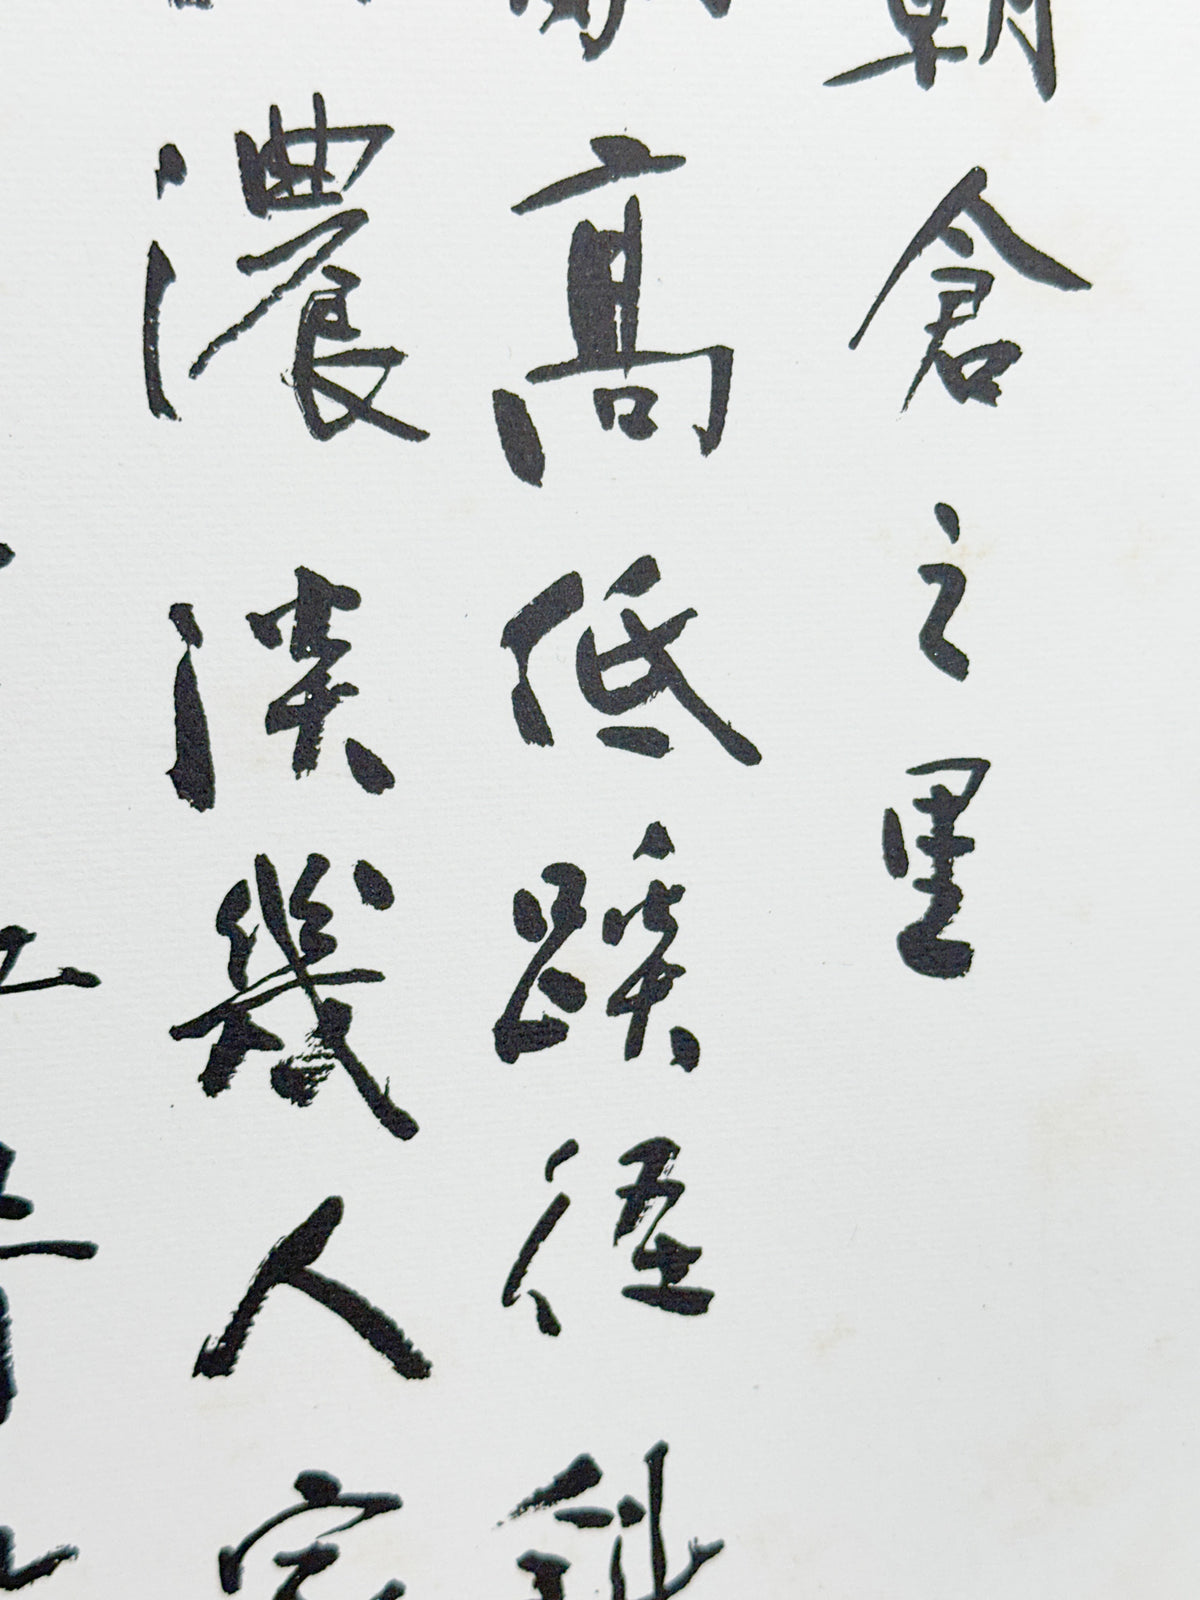 朝倉之里
高低蹊徑斜
濃淡幾人家